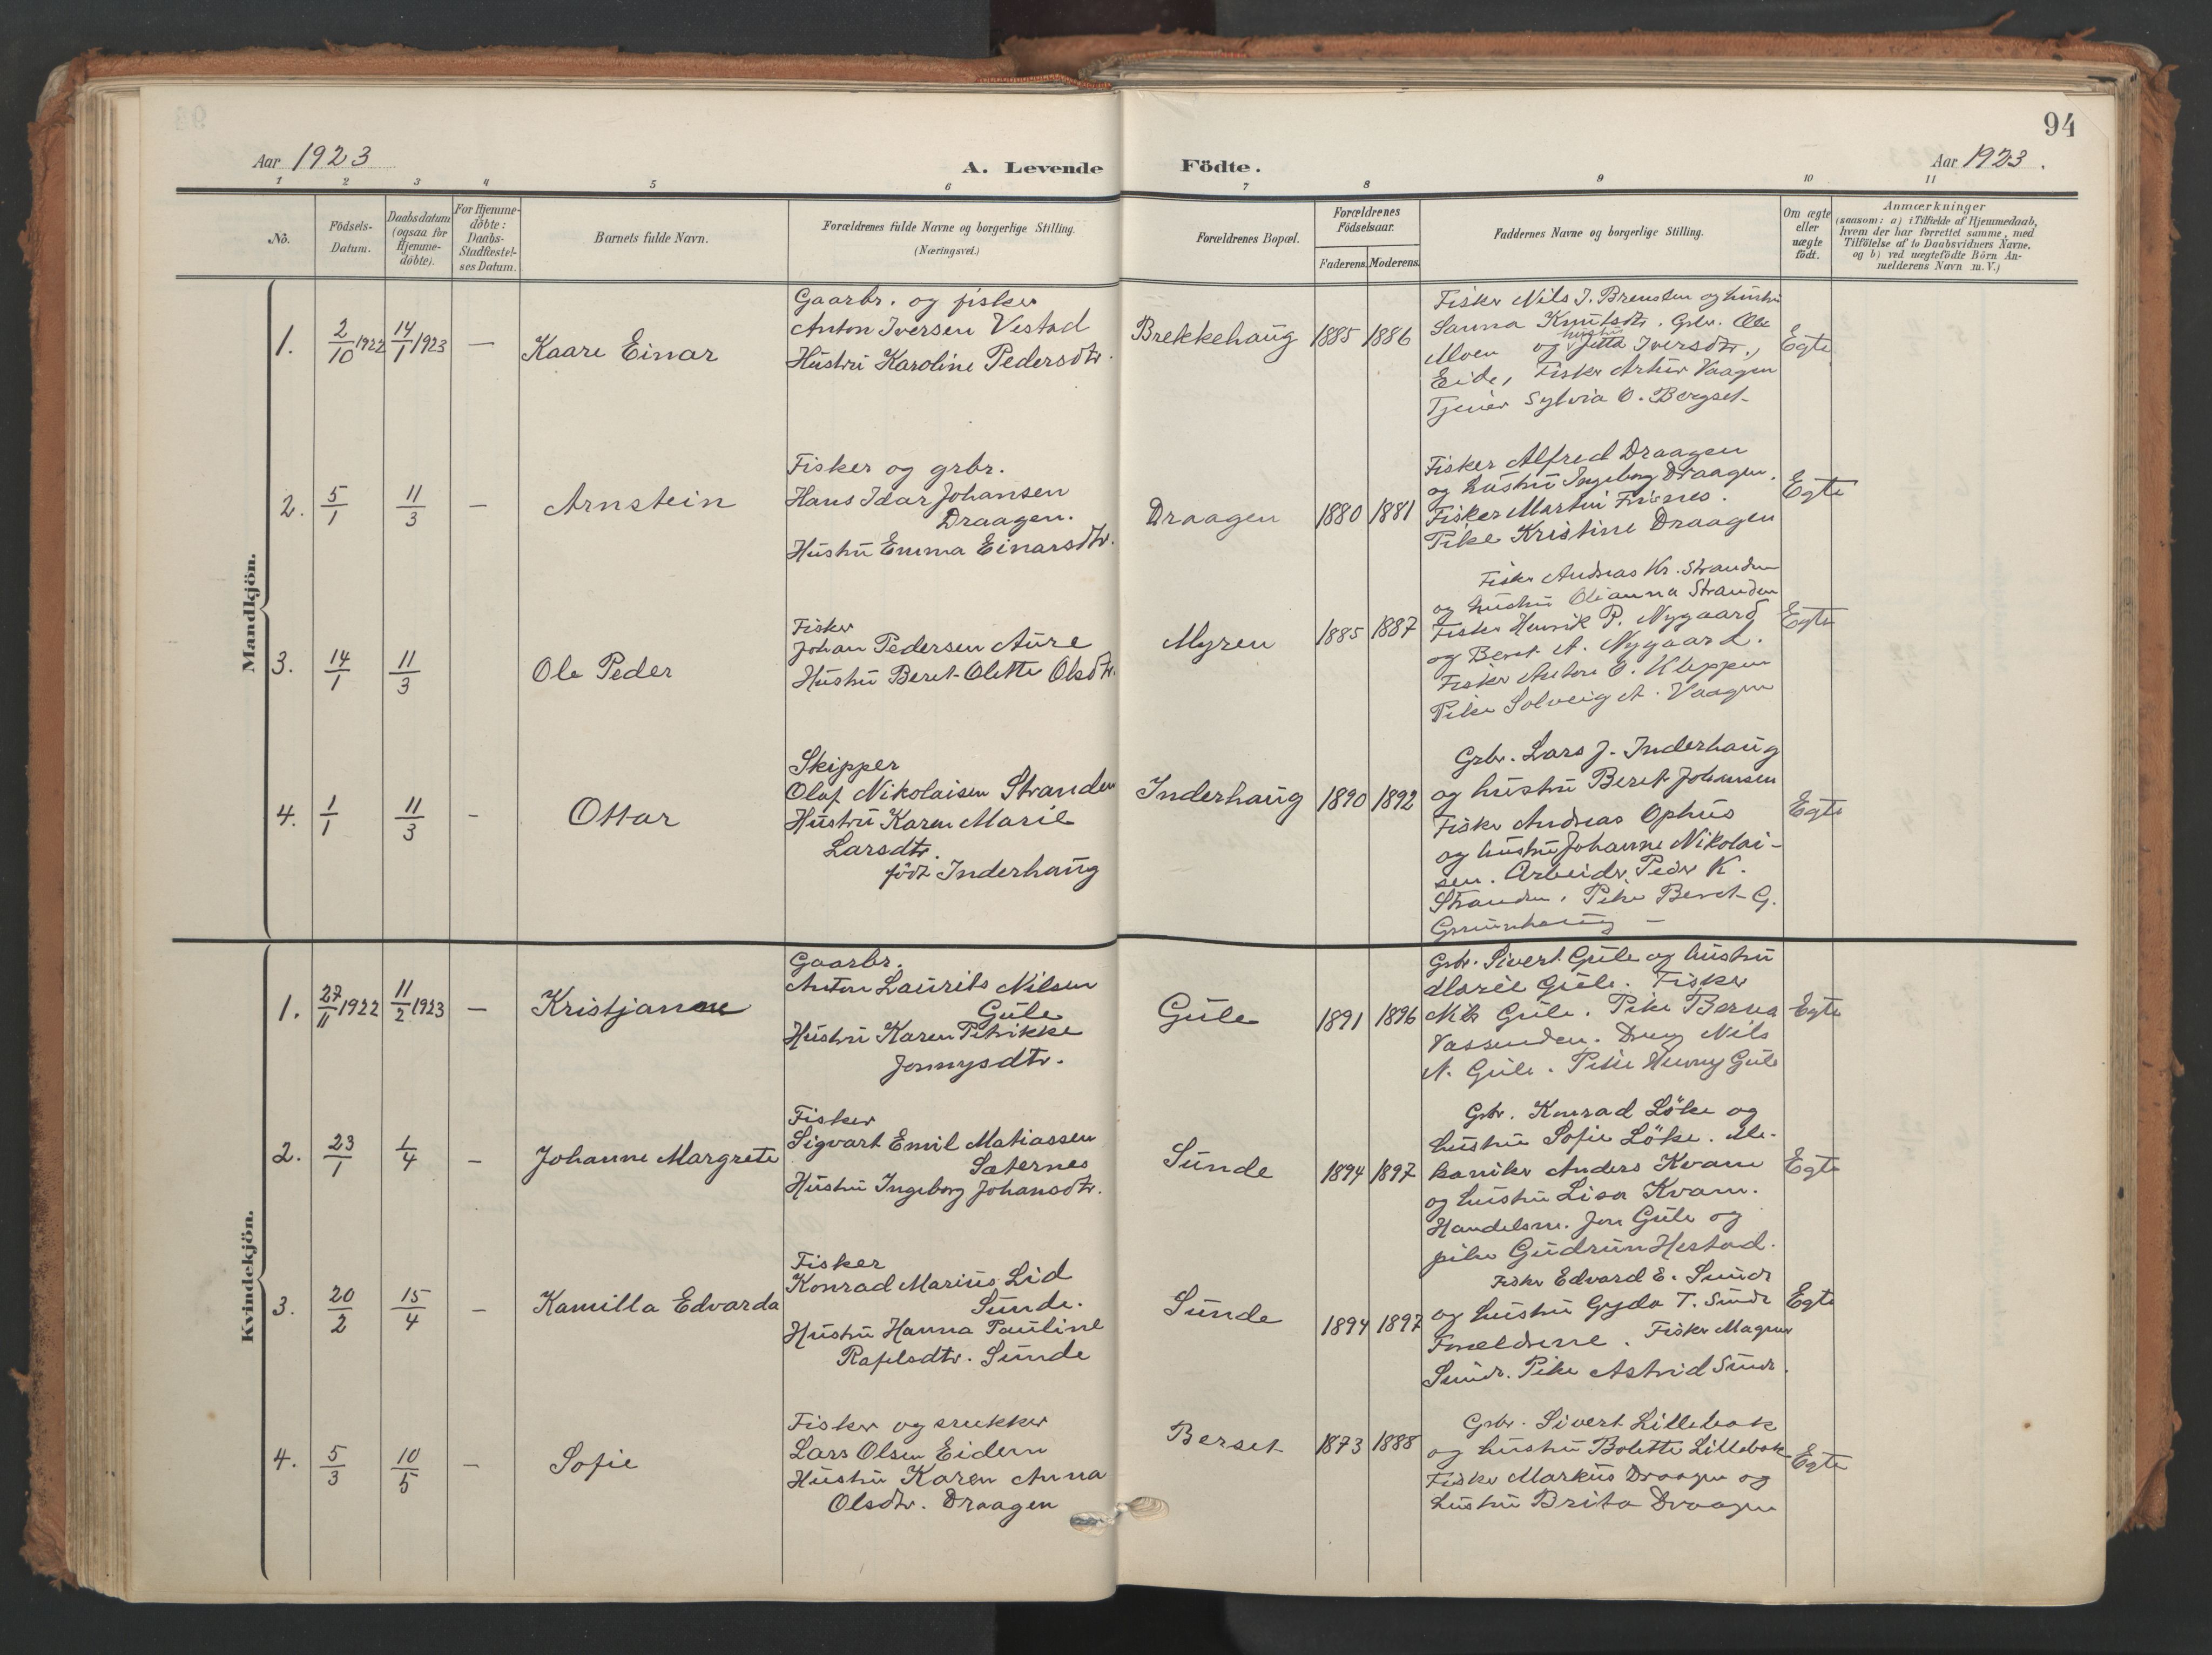 94
Aar 1923
A. Levende Födte.
Aar 1923.
1 2 3 4 5 6 7 8 9 10 11
No.
Födsels-
Datum.
Daabsdatum
(ogsaa for
Hjemme-
döbte).
For Hjemme-
döbte:
Daabs-
Stadfæstel-
ses Datum.
Barnets fulde Navn.
Forældrenes fulde Navne og borgerlige Stilling.
(Næringsvei.)
Forældrenes Bopæl.
Forældrenes
Födselsaar.
Faderens. Moderens.
Faddernes Navne og borgerlige Stilling.
Om ægte
eller
uægte
født.
Anmærkninger
(saasom: a) i Tilfælde af Hjemmedaab,
hvem der har forrettet samme, med
Tilföielse af to Daabsvidners Navne.
og b) ved uægtefödte Börn An-
melderens Navn m. V.)
Mandkjön.
1. 2/10 1922 14/1 1923 — Kaare Einar
Gaarbr. og fisker
Anton Iversen Vestad
Hustru Karoline Pedersdtr.
Brekkehaug 1885 1886
Fisker Nils J. Bremsten og hustru
Sanna Knutsdtr. Grbr. Ole
Moen og hustru Jetta Iversdtr.,
Eide, Fisker Arthur Vaagen
Tjener Sylvia O. Bergset
Egte
2. 5/1 11/3 — Arnstein
Fisker og grbr.
Hans Idar Johansen
Draagen.
Hustru Emma Einarsdtr.
Draagen 1880 1881
Fisker Alfred Draagen
og hustru Ingeborg Draagen.
Fisker Martin Frisnes.
Pike Kristine Draagen
Egte
3. 14/1 11/3 Ole Peder
Fisker
Johan Pedersen Aure
Hustru Beret-Olette Olsdtr.
Myren 1885 1887
Fisker Andreas Kr. Stranden
og hustru Olianna Stranden
Fisker Henrik P. Nygaard
og Beret A. Nygaard.
Fisker Anton E. Kleppen
Pike Solveig A. Vaagen
Egte
4. 1/1 11/3 - Ottar
Skipper
Olaf Nikolaisen Stranden
Hustru Karen Marie
Larsdtr.
født Inderhaug
Inderhaug 1890 1892
Grbr. Lars J. Inderhaug
og hustru Beret Johansen
Fisker Andreas Ophus
og hustru Johanne Nikolai-
sen. Arbeider Peder K.
Stranden, Pike Beret G.
Egte
Kvindekjön.
1. 27/11 1922 11/2 1923 — Kristjanne
Gaarbr.
Anton Laurits Nilsen
Gule
Hustru Karen Petrikke
Jonnysdtr.
Gule 1891 1896
Grbr. Sivert Gule og hustru
Marie Gule. Fisker
Nils Gule. Pike Berna
Vassenden. Dreng Nils
N. Gule. Pike Henny Gule
Egte
2. 23/1 1/4 - Johanne Margrete
Fisker
Sigvart Emil Matiassen
Sæternes
Hustru Ingeborg Johansdtr.
Sunde 1894 1897
Grbr. Konrad Löke og
hustru Sofie Löke. Me-
kaniker Anders Kvam
og hustru Lisa Kvam.
Handelsm. Jon Gule og
pike Gudrun Hestad.
Egte
3. 20/2 15/4 - Kamilla Edvarda
Fisker
Konrad Marius Lid
Sunde.
Hustru Hanna Pauline
Rafelsdtr. Sunde
Sunde 1894 1897
Fisker Edvard E. Sunde
og hustru Gyda T. Sunde
Forældrene. Fisker Magnus
Sunde. Pike Astrid Sunde.
Egte
4. 5/3 10/5 — Sofie
Fisker og snekker
Lars Olsen Eidem
Hustru Karen Anna
Olsdtr. Draagen
Berset 1873 1888
Grbr. Sivert Lillebak
og hustru Bolette Lillebak
Fisker Markus Draagen og
hustru Brita Draagen
Egte